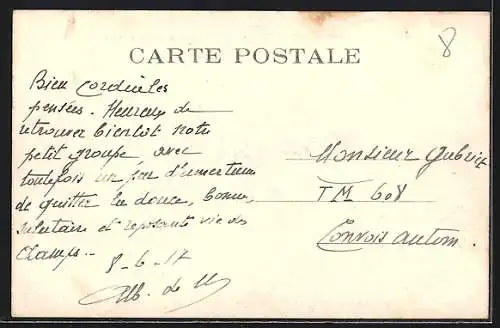 8
CARTE POSTALE
Bien cordiales
pensées. Heureux de
retrouver bientôt notre
petit groupe, avec
toutefois un peu d'amertume
de quitter la douce, bonne,
salutaire et reposante vie des
champs..
8-6-17
Alb. de
Monsieur
TM 608
Convois autom.